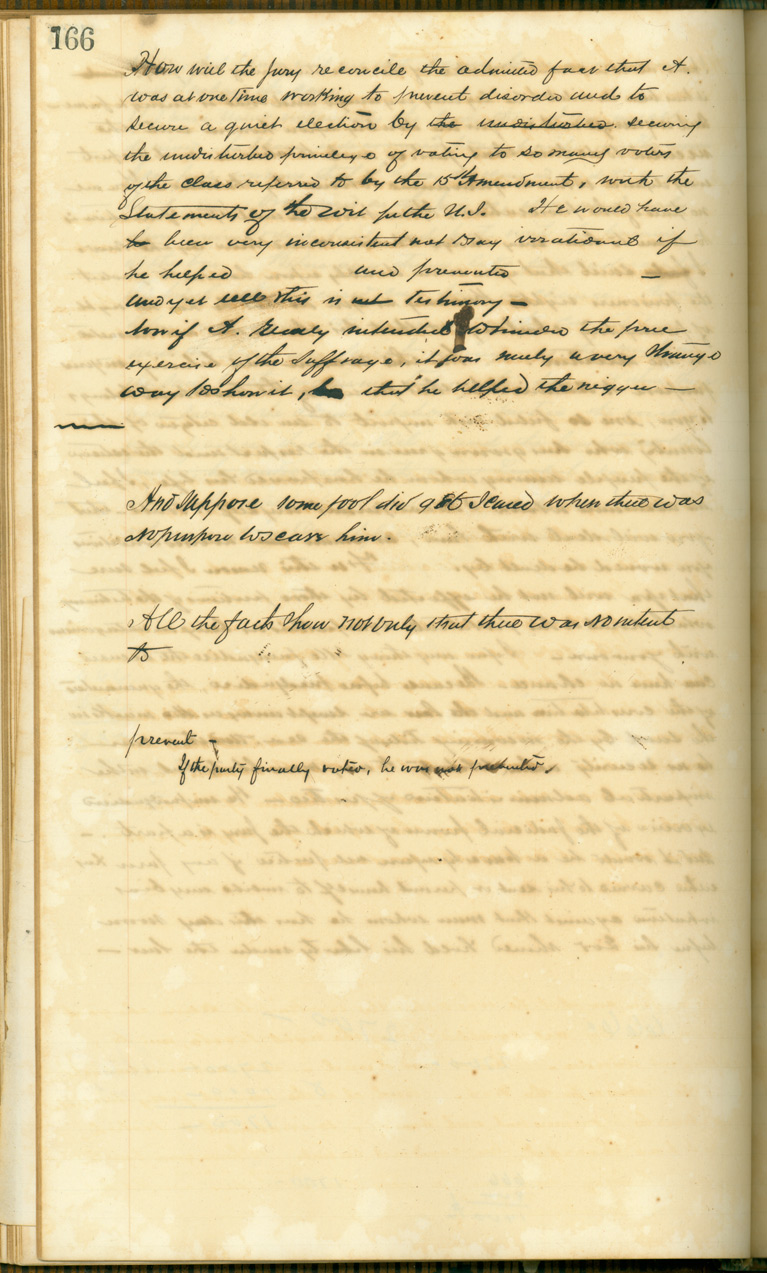 166
How will the Jury reconcile the admitted fact that A.
was at one time working to prevent disorder and to
secure a quiet election by the undisturbed securing
the undisturbed privilege of voting to so many voters
of the class referred to by the 15th Amendment, with the
Statements of the wit for the U.S. He would have
been very inconsistent not to say irrational if
he helped and prevented —
and yet all this is testimony —
Now if A. really intended to hinder the free
exercise of the suffrage, it was surely a very strange
way to show it, that he helped the nigger —
And suppose some fool did get scared when there was
no purpose to scare him.
All the facts show not only that there was no intent
to
prevent —
If the party finally voted, he was not prevented.